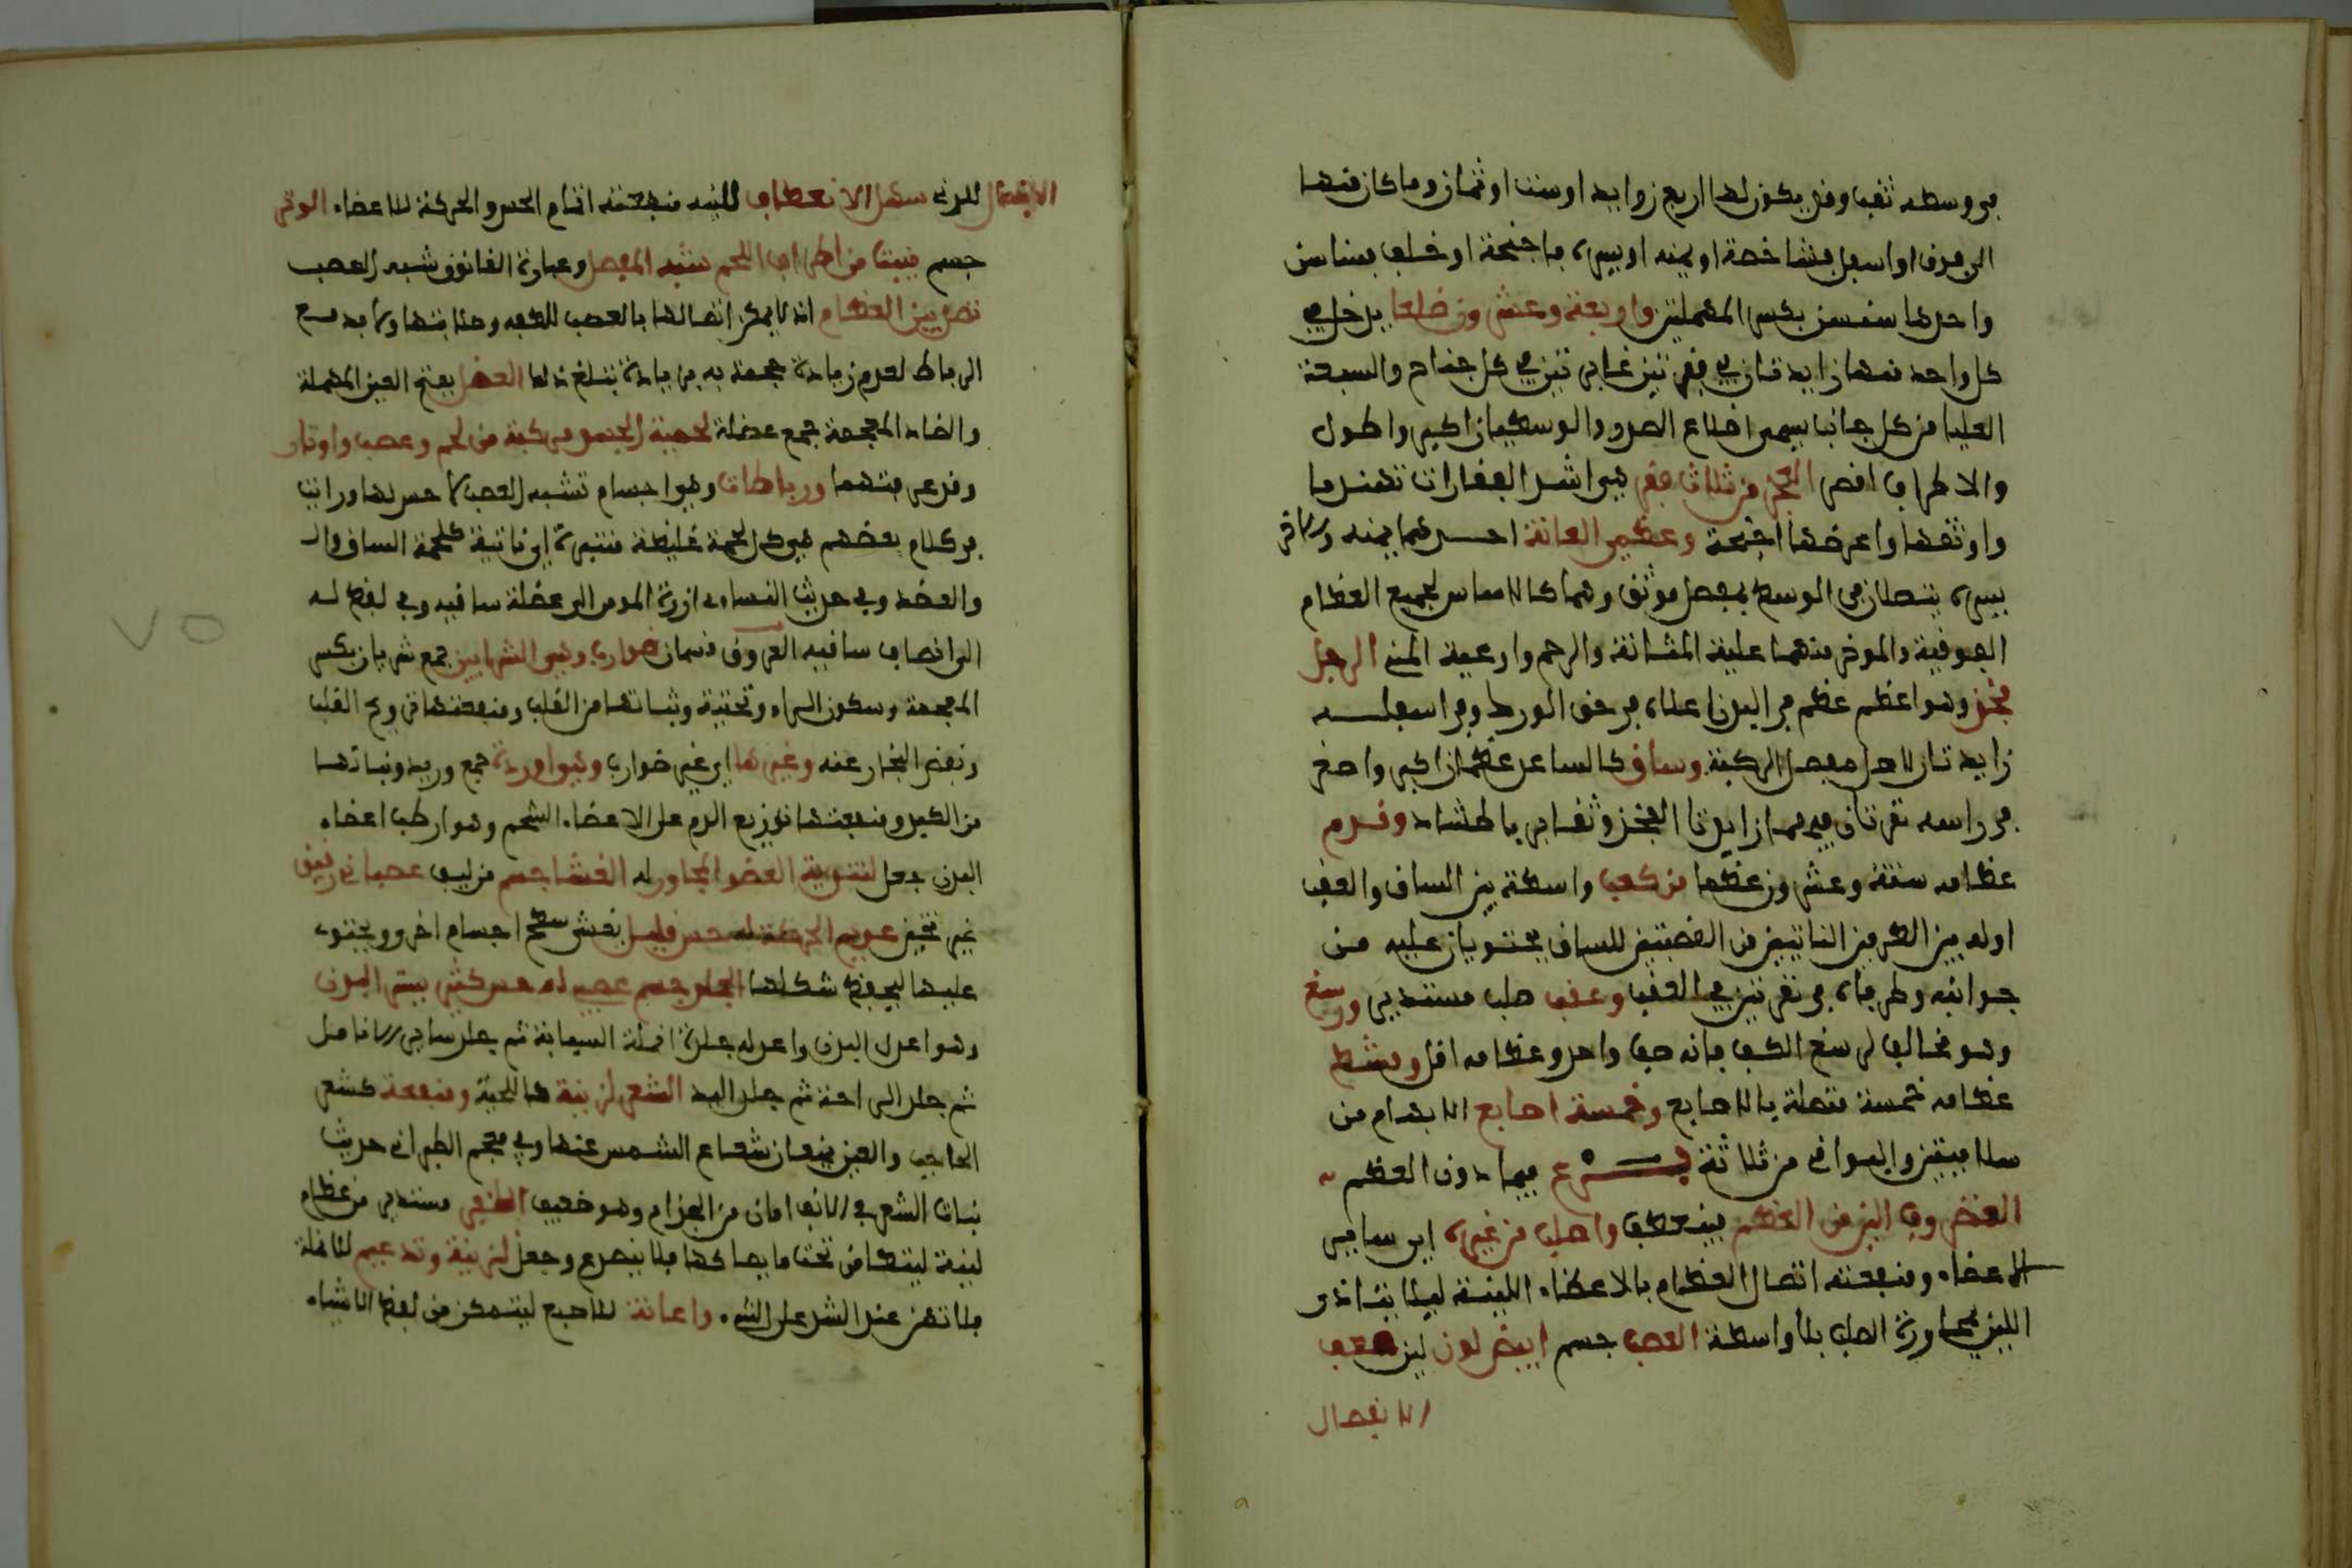 في وسطه ثقب وقد يكون لها اربع زوايد او ست او ثمان وما كان منها
الى فوق او اسفل فشاخصة او يمنه او يسره فاجنحة او خلف فسناسن
واحدها سنسن بكسر المهملتين واربعة وعشرون ضلعا يدخل في
كل واحد منها زايدتان في فقرتين غايرتين في كل جناح والسبعة
العليا من كل جانب تسمى اضلاع الصدر والوسطيان اكبر واطول
والاطراف اقصر العجز من ثلاث فقر هي اشد الفقارات تهندما
واوثقها واعرضها اجنحة وعظمي العانة احدهما يمنه والاخر
يسره يتصلان في الوسط بمفصل موثق وهما كالاساس لجميع العظام
الفوقية والموخر منهما عليه المثانة والرحم واوعية المني الرجل
فخذ وهو اعظم عظم في البدن اعلاه في حق الورك وفي اسفلـــه
زايدتان لاجل مفصل الركبة وساق كالساعد عظمان اكبر واصغر
في راسه نقرتان فيهما زايدتا الفخذ وثقا برباط شاد وقدم
عظامه ستة وعشرون عظما من كعب واسطة بين الساق والعقب
اوله بين الطرفين الناتيين من القصبتين للساق يحتويان عليه من
جوانبه وطرفاه في نقرتين في العقب وعقب صلب مستدير ورسغ
وهو مخالف لرسغ الكف فانه صف واحد وعظامه اقل ومشط
عظامه خمسة متصلة بالاصابع وخمسة اصابع الابهام من
سلاميتين والبواقي من ثلاثة فـــرع فيما دون العظم
الغضروف الين من العظم ينعطف واصلب من غيره اي ساير
الاعضاء ومنفعته اتصال العظام بالاعضاء اللينة ليلا يتاذى
اللين بمجاورة الصلب بلا واسطة العصب جسم ابيض لدن لين صعب
الانفصال
الانفصال للدنه سهل الانعطاف للينه منفعته اتمام الحس والحركة للاعضاء الوتر
جسم ينبت من اطراف اللحم شبيه المفصل وعبارة القانون شبيه العصب
تصل بين العظام اذ لا يمكن اتصالها بالعصب للطفه وصلابتها ولا بد مع
الرباط لعدم زيادة حجمه به زيادة يبلغ ذلك العضل بفتح العين المهملة
والضاد المعجمة جمع عضلة لحمية الجسم مركبة من لحم وعصب واوتار
وقد مر منهما ورباطات وهو اجسام تشبه العصب لا حس لها ورايت
في كلام بعضهم هي كل لحمة غليظة منتبرة اي ناتية كلحمة الساق والـ
والعضد وفي حديث النساء ازرة المومن الى عضلة ساقيه وفي لفظ له
الى انصاف ساقيه العروق قسمان ضوارب وهي الشرايين جمع شريان بكسر
المعجمة وسكون الراء وتحتية ونباتها من القلب ومنفعتها ترويح القلب
ونفض البخار عنه وغيرها اي غير ضوارب وهو اوردة جمع وريد ونباتها
من الكبد ومنفعتها توزيع الدم على الاعضاء الشحم وهو ارطب اعضاء
البدن جعل لتندية العضو المجاور له الغشا جسم من ليف عصباني رقيق
غير ثخين عديم الحركة له حس قليل يغشى سطح اجسام اخر ويحتوى
عليها ليحفظ شكلها الجلد جسم عصبي له حس كثير يستر البدن
وهو اعدل البدن واعدله جلدة انملة السبابة ثم جلد ساير الانامل
ثم جلد الراحة ثم جلد اليد الشعر لزينة كاللحية ومنفعة كشعر
الحاجب والعين يمنعان شعاع الشمس عنها وفي معجم الطبراني حديث
نبات الشعر في الانف امان من الجذام وهو ضعيف الظفر مستدير من عظام
لينة ليتطامن تحت ما يصاكها فلا ينصدع وجعل لزينة وتدعيم للانملة
فلا تهن عند الشد على الشيء واعانة للاصبع ليتمكن من لقط الاشياء
٧٥